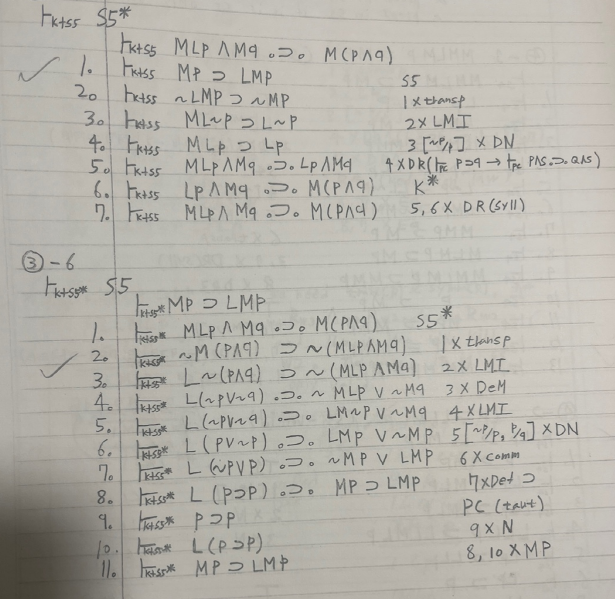 ⊢K+S5 S5*
⊢K+S5 MLp ∧ Mq .⊃. M(p∧q)
1. ⊢K+S5 Mp ⊃ LMp S5
2. ⊢K+S5 ~LMp ⊃ ~Mp 1×transp
3. ⊢K+S5 ML~p ⊃ L~p 2×LMI
4. ⊢K+S5 MLp ⊃ Lp 3[~p/p]×DN
5. ⊢K+S5 MLp∧Mq .⊃. Lp∧Mq 4×DR(⊢PC p⊃q → ⊢PC p∧s.⊃.q∧s)
6. ⊢K+S5 Lp∧Mq .⊃. M(p∧q) K*
7. ⊢K+S5 MLp∧Mq .⊃. M(p∧q) 5,6×DR(Syll)
③-6
⊢K+S5* S5
⊢K+S5* Mp ⊃ LMp
1. ⊢K+S5* MLp∧Mq .⊃. M(p∧q) S5*
2. ⊢K+S5* ~M(p∧q) ⊃ ~(MLp∧Mq) 1×transp
3. ⊢K+S5* L~(p∧q) ⊃ ~(MLp∧Mq) 2×LMI
4. ⊢K+S5* L(~p∨~q) .⊃. ~MLp∨~Mq 3×DeM
5. ⊢K+S5* L(~p∨~q) .⊃. LM~p∨~Mq 4×LMI
6. ⊢K+S5* L(p∨~p) .⊃. LMp∨~Mp 5[~p/p, p/q]×DN
7. ⊢K+S5* L(~p∨p) .⊃. ~Mp∨LMp 6×comm
8. ⊢K+S5* L(p⊃p) .⊃. Mp⊃LMp 7×Def ⊃
9. ⊢K+S5* p⊃p PC(taut)
10. ⊢K+S5* L(p⊃p) 9×N
11. ⊢K+S5* Mp ⊃ LMp 8,10×MP